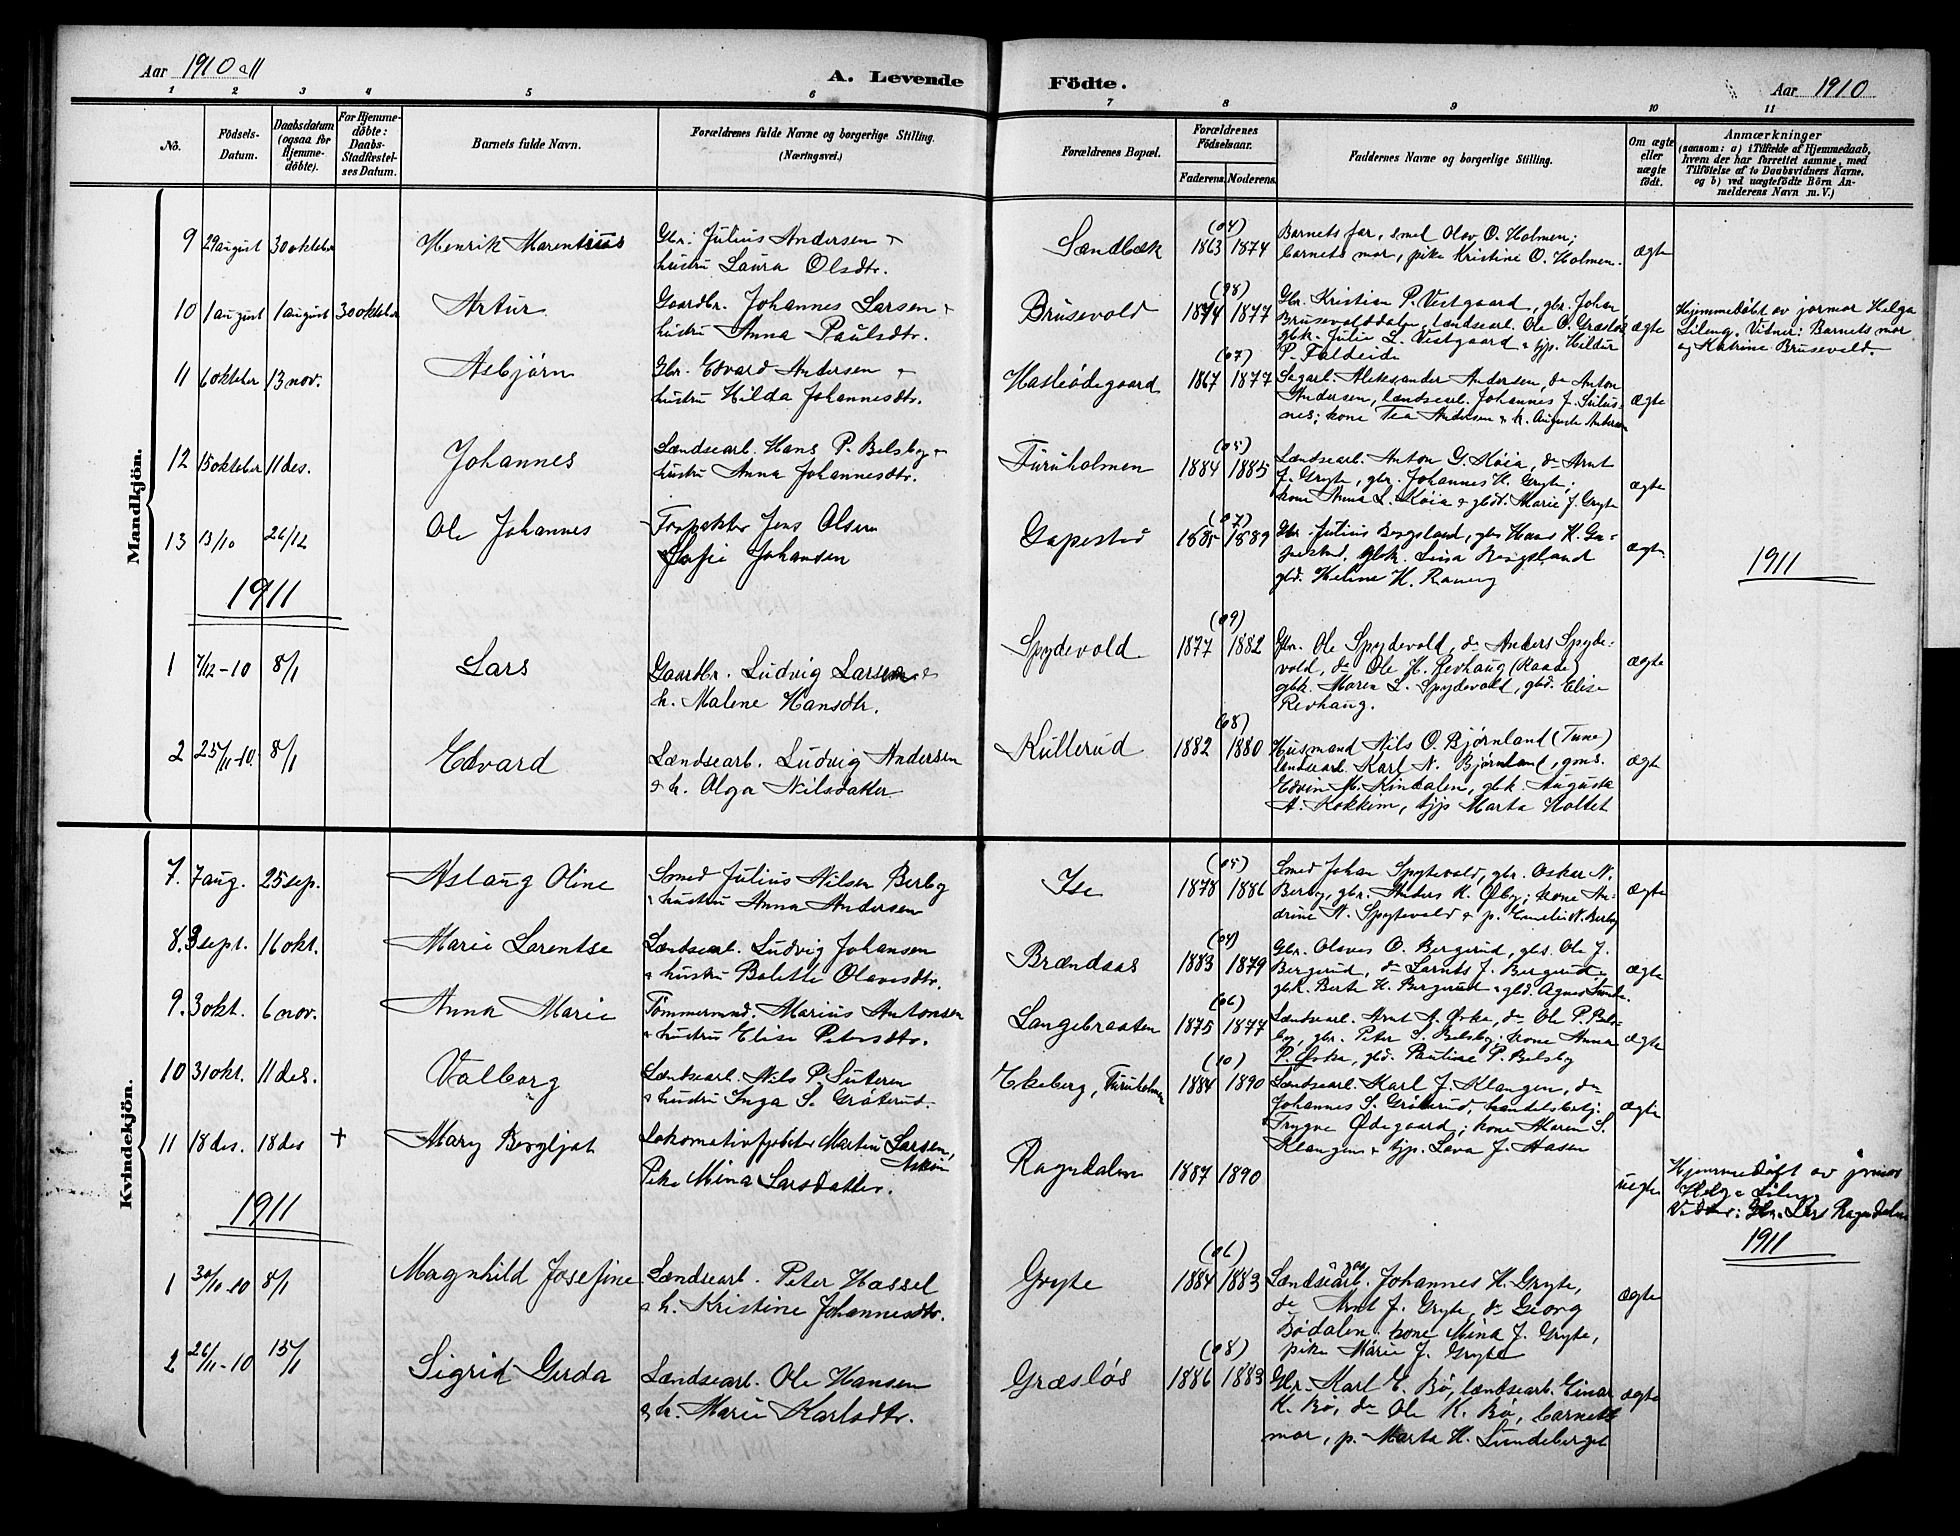 Aar 1910 & 11
A. Levende
Födte.
Aar 1910
1 2 3 4 5 6 7 8 9 10 11
No.
Födsels-
Datum.
Daabsdatum
(ogsaa for
Hjemme-
döbte).
For Hjemme-
döbte:
Daabs-
Stadfæstel-
ses Datum.
Barnets fulde Navn.
Forældrenes fulde Navne og borgerlige Stilling.
(Næringsvei.)
Forældrenes Bopæl.
Forældrenes
Födselsaar.
Faderens. Moderens.
Faddernes Navne og borgerlige Stilling.
Om ægte
eller
uægte
födt.
Anmærkninger
(saasom: a) i Tilfælde af Hjemmedaab,
hvem der har forrettet samme, med
Tilföielse af to Daabsvidners Navne,
og b) ved uægtefödte Börn An-
melderens Navn m. V.)
Mandkjön.
9 29 august 30 oktober Henrik Marentius
Gbr. Julius Andersen &
hustru Laura Olsdtr.
Sandbæk (04) 1863 1874
Barnets far, smed Olav O. Holmen;
barnets mor, pike Kristine O. Holmen.
ægte
10 1 august 1 august 30 oktober Artur
Gaardbr. Johannes Larsen &
hustru Anna Paulsdtr.
Brusevold (98) 1874 1877
Gbr. Kristian P. Vestgaard, gbr. Johan
Brusevolddalen, landsearb. Ole O. Græsløs
gbk. Julie L. Vestgaard & tjp. Hildur
P. Faldeide
ægte
Hjemmedøbt av jormor Helga
Lileng. Vitner: Barnets mor
og Katrine Brusevold.
11 6 oktober 13 nov. Asbjørn
Gbr. Edvard Andersen &
hustru Hilda Johannesdtr.
Hasleødegaard (07) 1867 1877
Sagarb. Aleksander Andersen, do Anton
Andersen, landsearb. Johannes J.
nes; kone Tea Andersen & k. Auguste Andersen
ægte
12 15 oktober 11 des. Johannes
Landsearb. Hans P. Belsby &
hustru Anna Johannesdtr.
Furuholmen (05) 1884 1885
Landsearb. Anton G. Køia, do Arnt
J. Gryte, gbr. Johannes H. Gryte;
kone Anna L. Køia & gbdt. Marie J. Gryte
ægte
13 13/10 26/12 Ole Johannes
Forpakter Jens Olsen
Sofie Johansen
Gapestad (07) 1885 1889
Gbr. Julius Bergsland, gbr Hans K. Ga-
pestad, gbk. Lina Bergsland
gbd. Heline H.
ægte
1911
1911
1 7/12-10 8/1 Lars
Gaardbr. Ludvig Larsen &
h. Malene Hansdtr.
Spydevold (09) 1877 1882
Gbr. Ole Spydevold, do Anders Spyde-
vold, do Ole H. Revhaug (Raade)
gbk. Maren L. Spydevold, gbd. Elise
Revhaug.
ægte
2 25/11-10. 8/1 Edvard
Landsearb. Ludvig Andersen
& h. Olga Nilsdatter
Kullerud (08) 1882 1880
Husmand Nils O. Bjørnland (Tune)
landsearb. Karl N. Bjørnland, gms.
Edvin M. Kindalen, gbk. Augusta
A. Kokkim, tjp Marta Holtet
ægte
Kvindekjön.
7. 7 aug. 25 sep. Aslaug Oline
Smed Julius Nilsen Berby
& hustru Anna Andersen
Ise (05) 1878 1886
Smed Johan Spytevold, gbr. Oskar N.
Berby, gbr. Anders K. Øby; kone An-
drine N. Spytevold & p. Emelie N. Berby
ægte
8. 3 sept. 16 okt. Marie Larentse
Landsearb. Ludvig Johansen
& hustru Bolette Olavesdtr.
Brændaas (04) 1883 1879
Gbr. Olaves O. Bergerud, gbs. Ole J.
Bergerud, do Larnts J. Bergerud;
gbk. Berte H. Bergerud & gbd. Agnes
ægte
9. 3 okt. 6 nov. Anna Marie
Tømmermnd. Marius Antonsen
& hustru Elise Petersdtr.
Langebraaten (06) 1875 1877
Landsearb. Arnt A. Ørka, do Ole P. Bels-
by, gbr. Peter S. Belsby; kone Anna
P. Ørka, gbd. Pauline P. Belsby
ægte
10 31 okt. 11 des. Valborg
Landsearb. Nils P. Suteren
& hustru Inga S. Grøterud.
Ekeberg, Furuholmen (10) 1884 1890
Landsearb. Karl J. Klangen, do
Johannes S. Grøterud, handelsbetj.
Trygve Ødegaard; kone Maren S.
Klangen & tjp. Lava J. Aasen
ægte
11 18 des. 18 des + Mary Bergljot
Lokomotivfyrbøter Martin Larsen,
Askim
Pike Mina Larsdatter.
Ragndalen 1887 1890
uegte
Hjemmedøpt av jormor
Helga Lileng
Vidner: Gbr. Lars Ragndalen
1911
1911
1 30/10-10 8/1 Magnhild Josefine
Landsearb. Peter Hassel
& h. Kristine Johannesdtr.
Gryte (06) 1884 1883
Landsearb. Johannes H. Gryte,
do Arnt J. Gryte, do Georg
Bødalen. kone Mina J. Gryte,
pike Marie J. Gryte
ægte
2 26/11-10 15/1 Sigrid Gerda
Landsearb. Ole Hansen
& h. Marie Karlsdtr.
Græsløs (08) 1886 1883
Gbr. Karl E. Bø, landsearb. Einar
K. Bø, do Ole K. Bø, barnets
mor, p. Marta H. Lundeberget
ægte